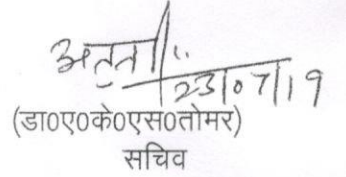 23/07/19
(डा0ए0के0एस0तोमर)
सचिव